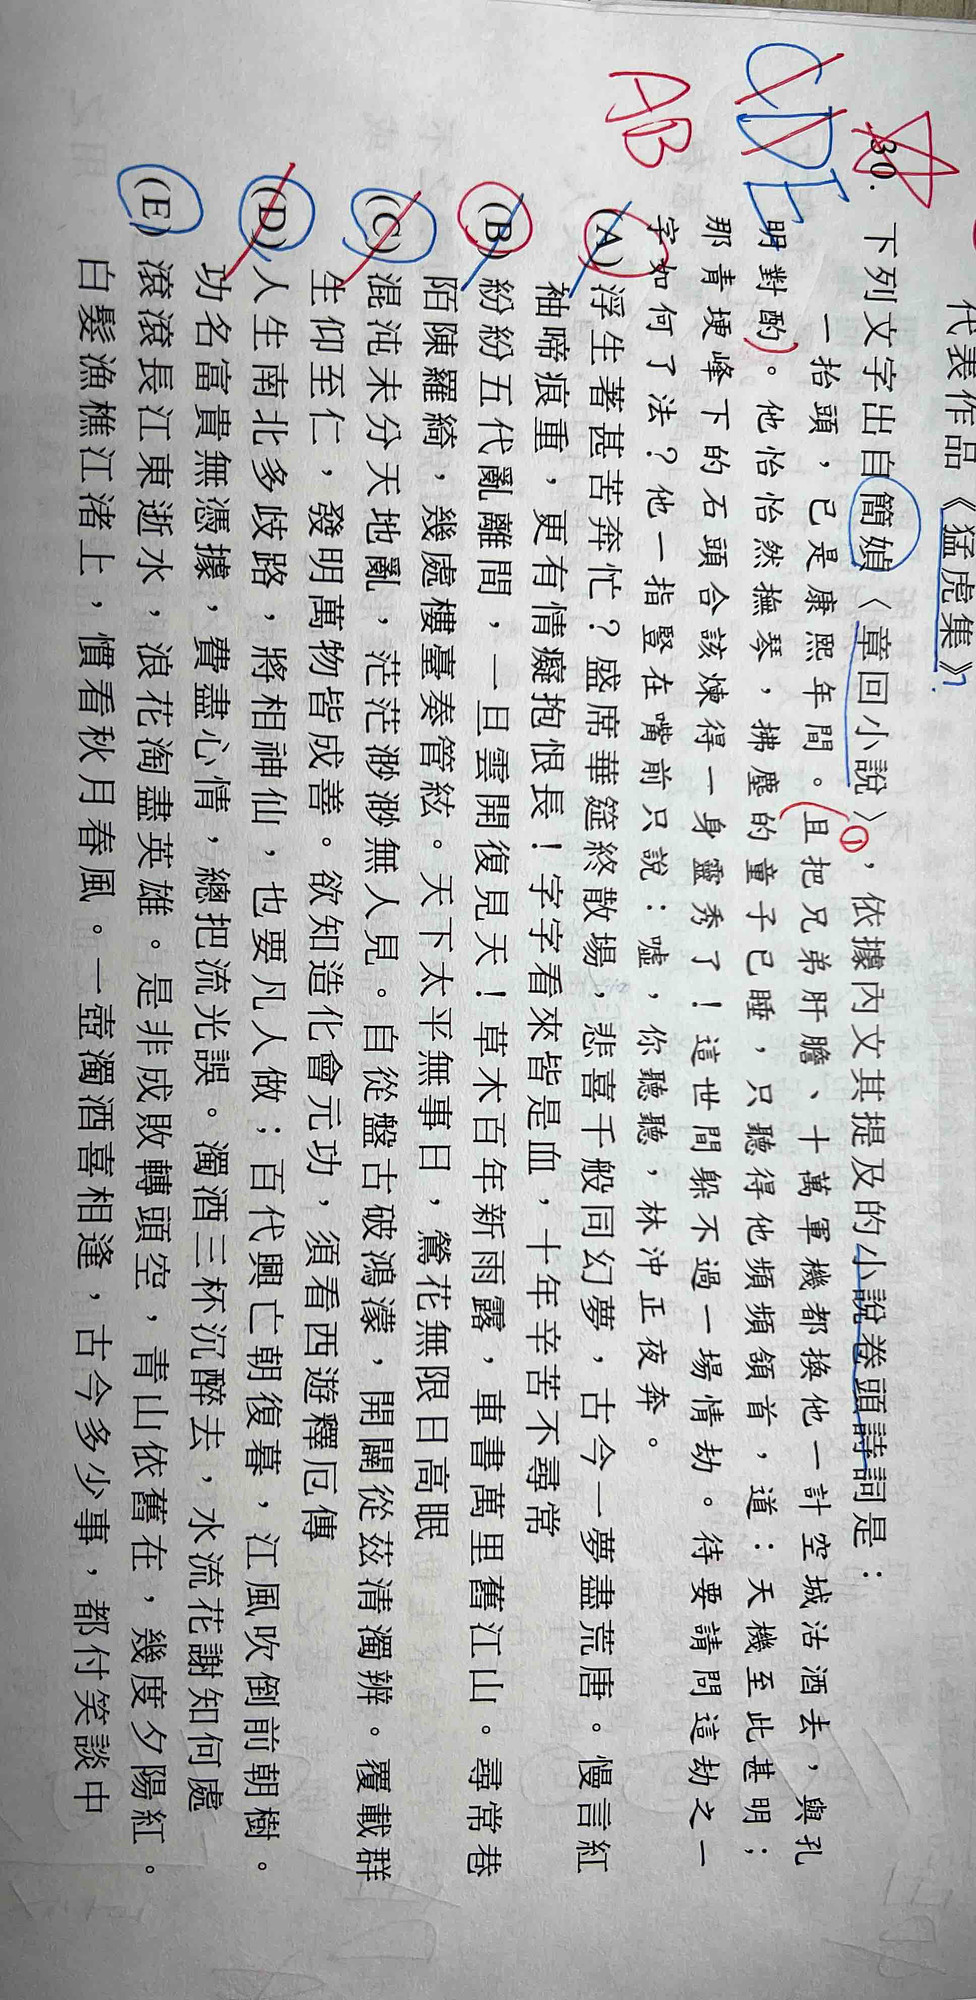 代表作品《猛虎集》?
30. 下列文字出自簡媜〈章回小說〉①，依據內文其提及的小說卷頭詩詞是：
一抬頭，已是康熙年間。且把兄弟肝膽、十萬軍機都換他一計空城沽酒去，與孔
明對酌。他怡怡然撫琴，拂塵的童子已睡，只聽得他頻頻頷首，道：天機至此甚明；
那青埂峰下的石頭合該煉得一身靈秀了！這世間躲不過一場情劫。待要請問這劫之一
字如何了法？他一指豎在嘴前只說：噓，你聽聽，林沖正夜奔。
CDE
AB
(A)浮生著甚苦奔忙？盛席華筵終散場，悲喜千般同幻夢，古今一夢盡荒唐。慢言紅
袖啼痕重，更有情癡抱恨長！字字看來皆是血，十年辛苦不尋常
(B)紛紛五代亂離間，一旦雲開復見天！草木百年新雨露，車書萬里舊江山。尋常巷
陌陳羅綺，幾處樓臺奏管絃。天下太平無事日，鶯花無限日高眠
(C)混沌未分天地亂，茫茫渺渺無人見。自從盤古破鴻濛，開闢從茲清濁辨。覆載群
生仰至仁，發明萬物皆成善。欲知造化會元功，須看西遊釋厄傳
(D)人生南北多歧路，將相神仙，也要凡人做；百代興亡朝復暮，江風吹倒前朝樹。
功名富貴無憑據，費盡心情，總把流光誤。濁酒三杯沉醉去，水流花謝知何處
(E)滾滾長江東逝水，浪花淘盡英雄。是非成敗轉頭空，青山依舊在，幾度夕陽紅。
白髮漁樵江渚上，慣看秋月春風。一壺濁酒喜相逢，古今多少事，都付笑談中